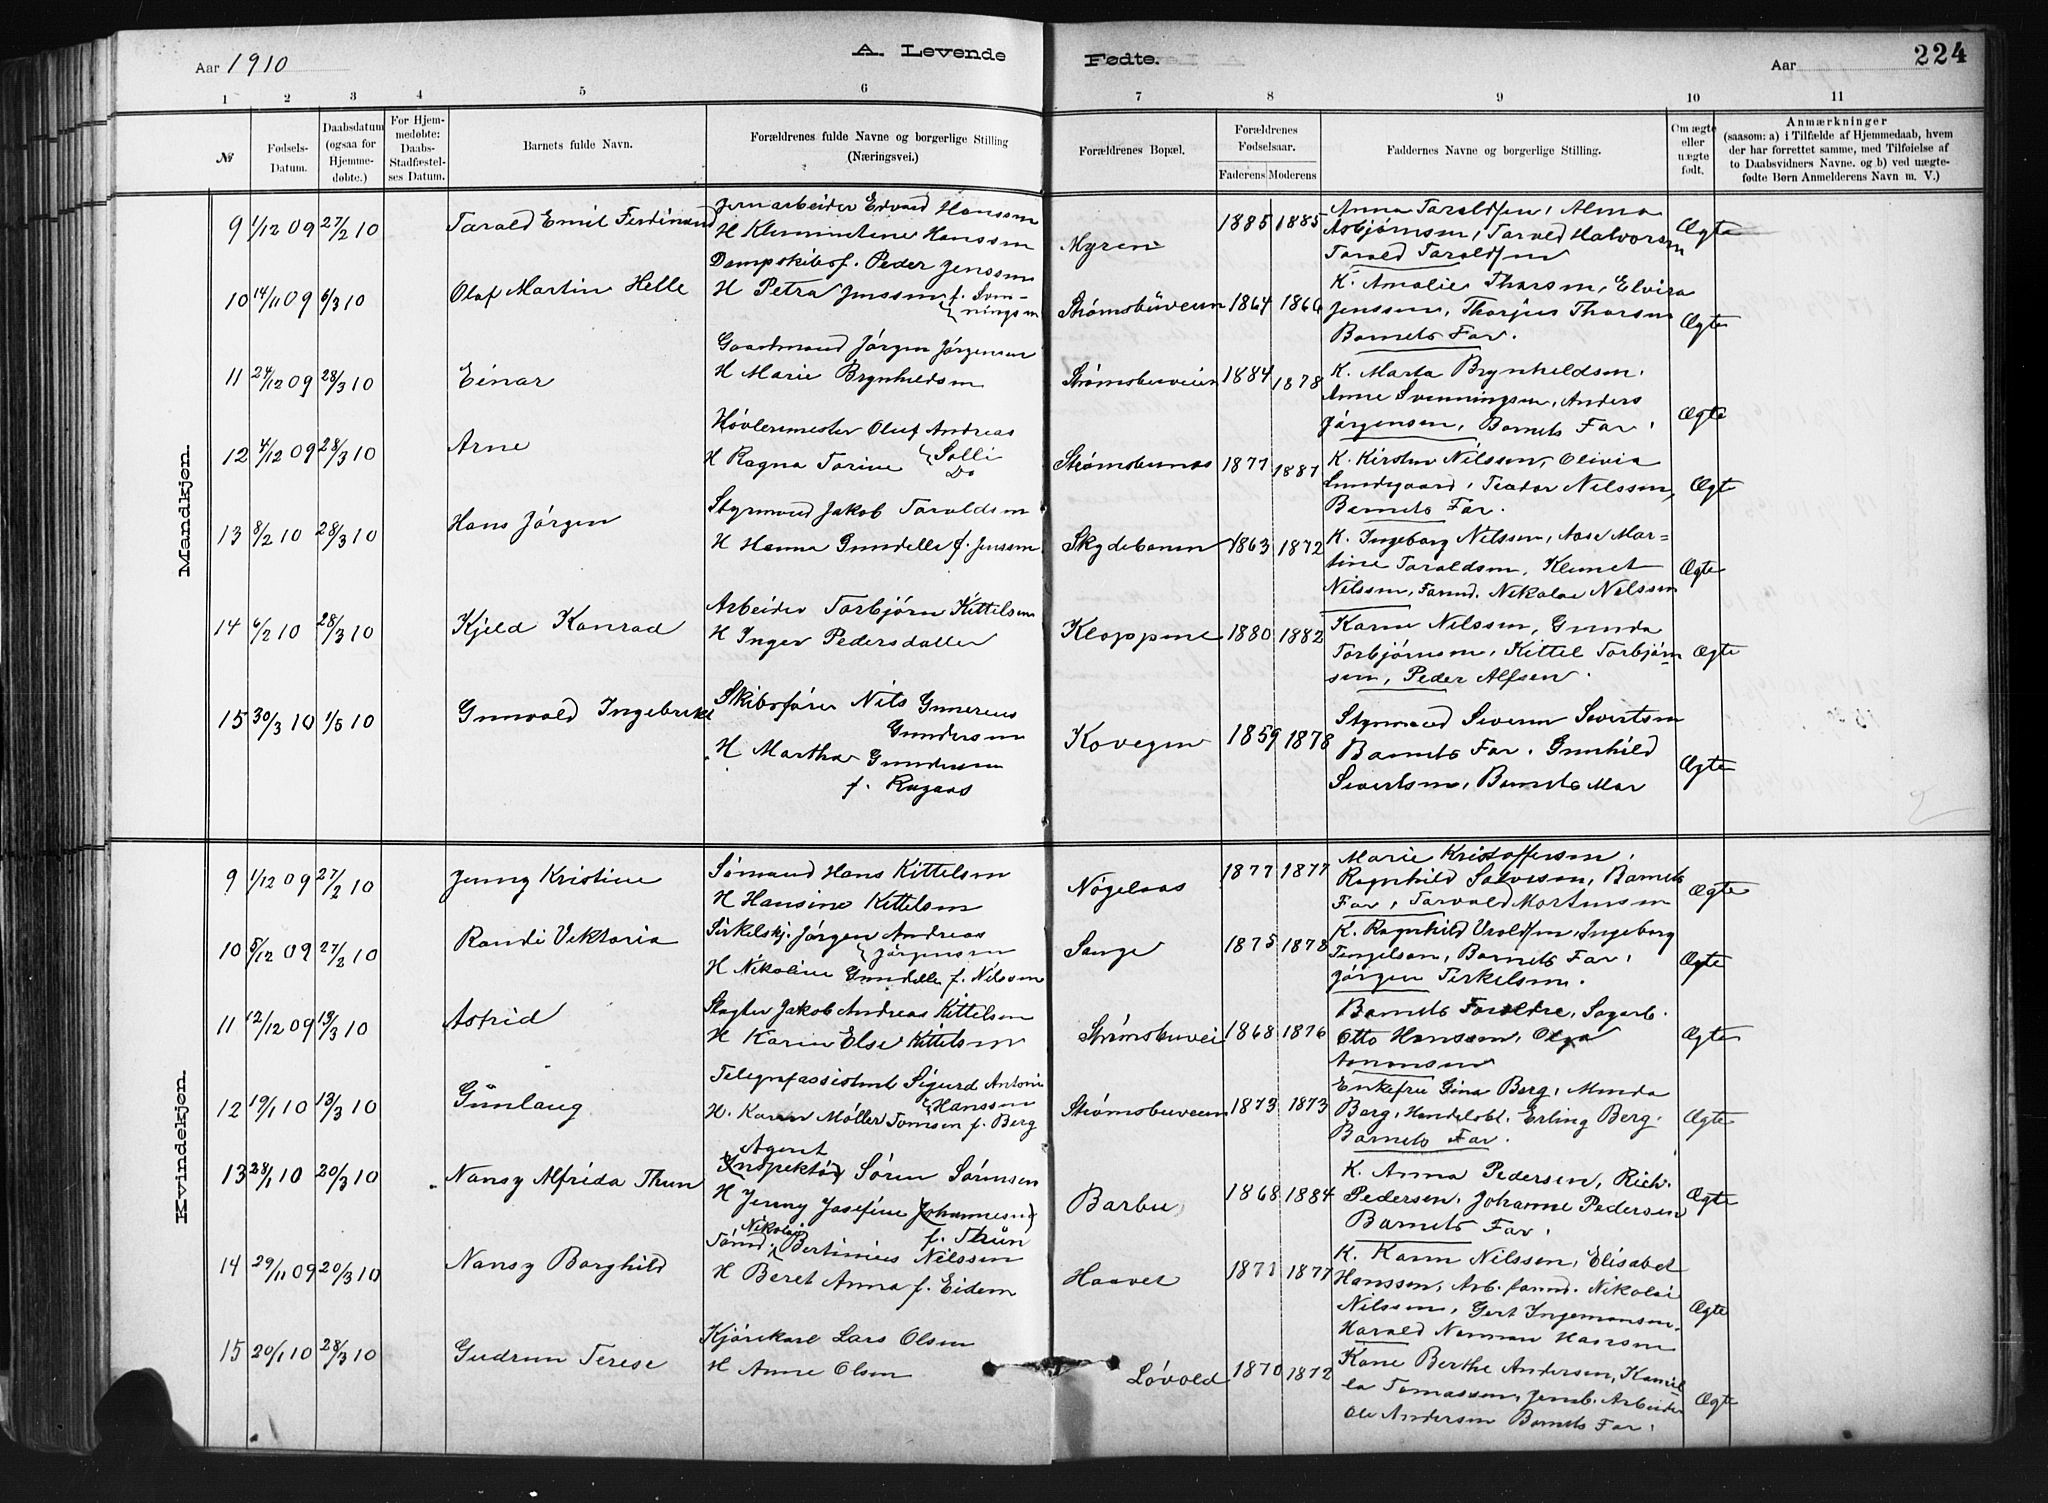 Aar 1910
A. Levende
Fødte.
Aar
224
1 2 3 4 5 6 7 8 9 10 11
№
Fødsels-
Datum.
Daabsdatum
(ogsaa for
Hjemme-
døbte.)
For Hjem-
medøbte:
Daabs-
Stadfæstel-
ses Datum.
Barnets fulde Navn.
Forældrenes fulde Navne og borgerlige Stilling
(Næringsvei.)
Forældrenes Bopæl.
Forældrenes
Fødselsaar.
Faderens Moderens
Faddernes Navne og borgerlige Stilling.
Om ægte
eller
uægte
født.
Anmærkninger
(saasom: a) i Tilfælde af Hjemmedaab, hvem
der har forrettet samme, med Tilføielse af
to Daabsvidners Navne. og b) ved uægte-
fødte Børn Anmelderens Navn m. V.)
Mandkjøn.
9 1/12 09 27/2 10 Tarald Emil Ferdinand
Jernarbeider Edvard Hanssen
H Klemmetine Hanssen
Myren 1885 1885
Anna Taraldsen, Alma
Asbjørnsen, Tarald Halvorsen
Tarald Taraldsen
Ægte
10 14/11 09 6/3 10 Olaf Martin Helle
Dampskibsf. Peder Jenssen
H Petra Jenssen f. Svenningsen
Strømsbuveien 1864 1866
K. Amalie Thorsen, Elvira
Jenssen, Thorjus Thorsen
Barnets Far.
Ægte
11 24/12 09 28/3 10 Einar
Gaardmand Jørgen Jørgensen
H Marie Brynhildsen
Strømsbuveien 1884 1878
K. Marta Brynhildsen.
Anne Svenningsen, Anders
Jørgensen, Barnets Far.
Ægte
12 4/12 09 28/3 10 Arne
Høvlermester Oluf Andreas Solli
H Ragna Torine Do
Strømsbunes 1877 1881
K. Kirsten Nilssen, Olivia
Lundegaard, Teodor Nilssen,
Barnets Far.
Ægte
13 8/2 10 28/3 10 Hans Jørgen
Styrmand Jakob Taraldsen
H Hanna Gundelle f. Jenssen
Skydebanen 1863 1872
K. Ingeborg Nilssen, Aase Mar-
tine Taraldsen, Klemet
Nilssen, Nikolai Nilssen
Ægte
14 6/2 10 28/3 10 Kjeld Konrad
Arbeider Torbjørn Kittelsen
H Inger Pedersdatter
Kloppene 1880 1882
Karen Nilssen, Gunda
Torbjørnsen, Kittel Torbjørn-
sen, Peder Alfsen.
Ægte
15 30/3 10 1/5 10 Gunvald Ingebrikt
Skibsfører Nils Gunerius
Gundersen
H Martha Gundersen
f. Rugaas
Kovegen 1859 1878
Styrmand Severin Sivertsen
Barnets Far. Gunhild
Sivertsen, Barnets Mor
Ægte
Kvindekjøn.
9 1/12 09 27/2 10 Jenny Kristine
Sømand Hans Kittelsen
H Hansine Kittelsen
Nøgelaas 1877 1877
Marie Kristoffersen,
Ragnhild Salvesen, Barnets
Far, Tarvald Mortensen
Ægte
10 5/12 09 27/2 10 Randi Viktoria
Jørgen Andreas
Jørgensen
H Nikoline Gundelle f. Nilssen
Songe 1875 1878
K. Ragnhild Ingeborg
Barnets Far,
Jørgen Terkelsen.
Ægte
11 12/12 09 13/3 10 Astrid
Slagter Jakob Andreas Kittelsen
H Karen Else Kittelsen
Strømsbuvei 1868 1876
Barnets Forældre, Sagarb.
Otto Hanssen, Olga
Aanonsen
Ægte
12 19/1 10 13/3 10 Gunlaug
Telegrafassistent Sigurd Antoni
Hanssen
H. Karen Møller Tomsen f. Berg
Strømsbuveien 1873 1873
Enkefru Gina Berg, Minda
Berg, Handelsbt. Erling Berg.
Barnets Far.
Ægte
13 28/1 10 20/3 10 Nansy Alfrida Thun
Agent
(Inspektør) Søren Sørensen
H Jenny Josefine (Johannesen)
f. Thun
Barbu 1868 1884
K. Anna Pedersen, Rich.
Pedersen, Johanne Pedersen
Barnets Far.
Ægte
14 29/11 09 20/3 10 Nansy Borghild
Sømd. Nikolai Bertinius Nilssen
H Beret Anna f. Eidem
Haavet 1871 1877
K. Karen Nilssen, Elisabet
Hanssen, Arb. formd. Nikolai
Nilssen, Gert Ingemansen.
Harald Norman Hansen
Ægte
15 20/1 10 28/3 10 Gudrun Terese
Kjørekarl Lars Olsen
H Anne Olsen
Løvold 1870 1872
Kone Berthe Andersen, Kamil-
la Tomassen, Jernb. Arbeider
Ole Andersen Barnets Far.
Ægte